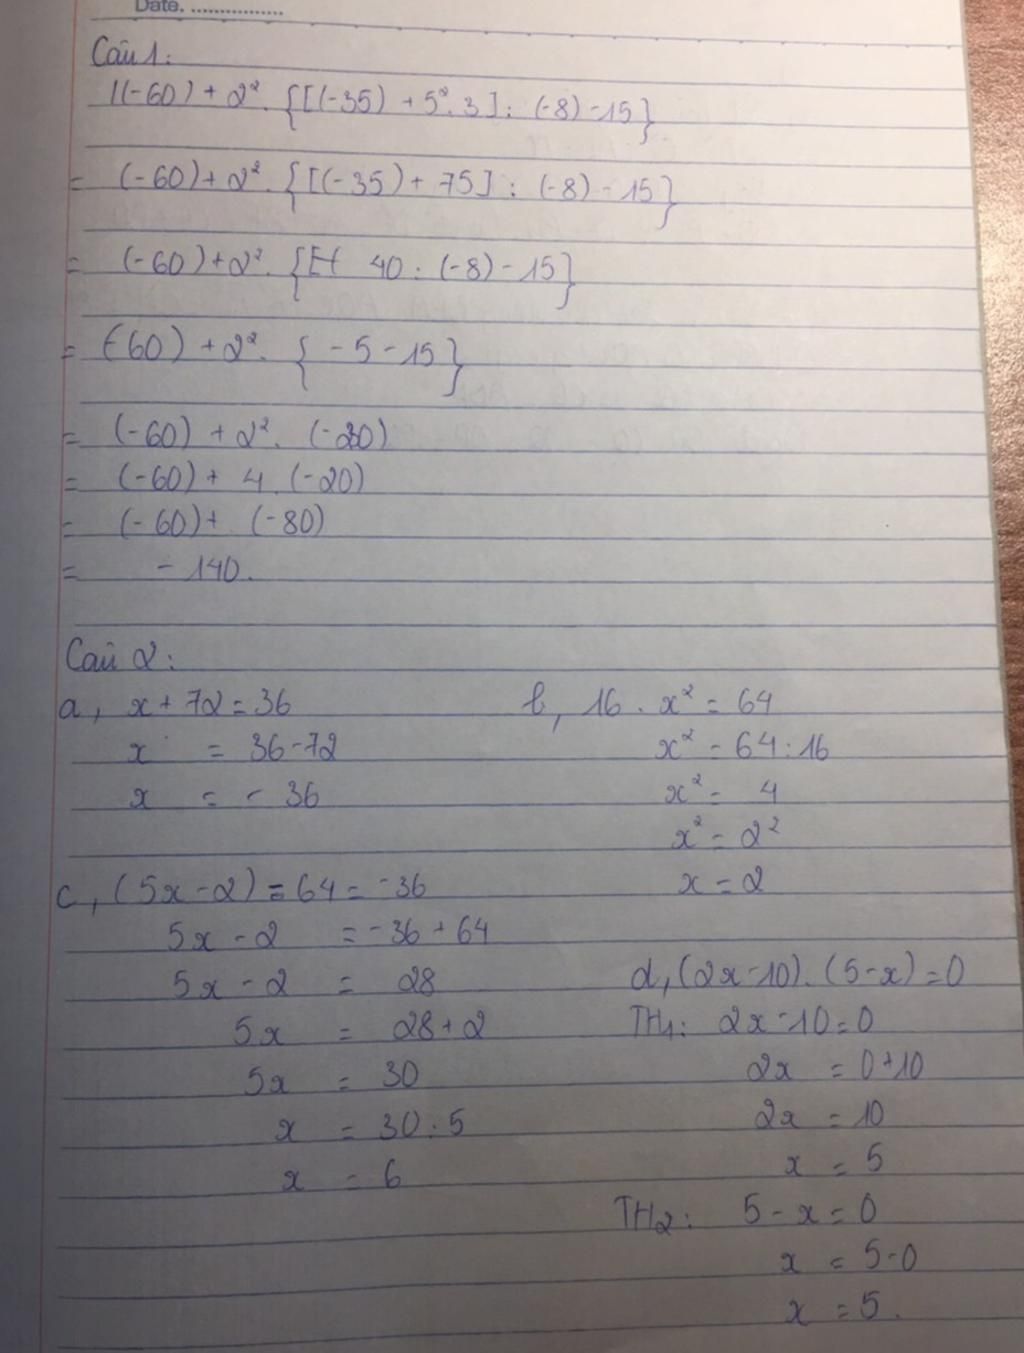 Date. ................
Câu 1:
1(-60) + 2². {[(-35) + 5². 3] : (-8) - 15}
= (-60) + 2². {[(-35) + 75] : (-8) - 15}
= (-60) + 2². { 40 : (-8) - 15}
= (-60) + 2². { -5 - 15}
= (-60) + 2². (-20)
= (-60) + 4 . (-20)
= (-60) + (-80)
= - 140.
Câu 2:
a, x + 72 = 36
x = 36 - 72
x = - 36
b, 16 . x² = 64
x² = 64 : 16
x² = 4
x² = 2²
x = 2
c, (5x - 2) = 64 = -36
5x - 2 = -36 + 64
5x - 2 = 28
5x = 28 + 2
5x = 30
x = 30 : 5
x = 6
d, (2x - 10). (5 - x) = 0
TH1: 2x - 10 = 0
2x = 0 + 10
2x = 10
x = 5
TH2: 5 - x = 0
x = 5 - 0
x = 5.